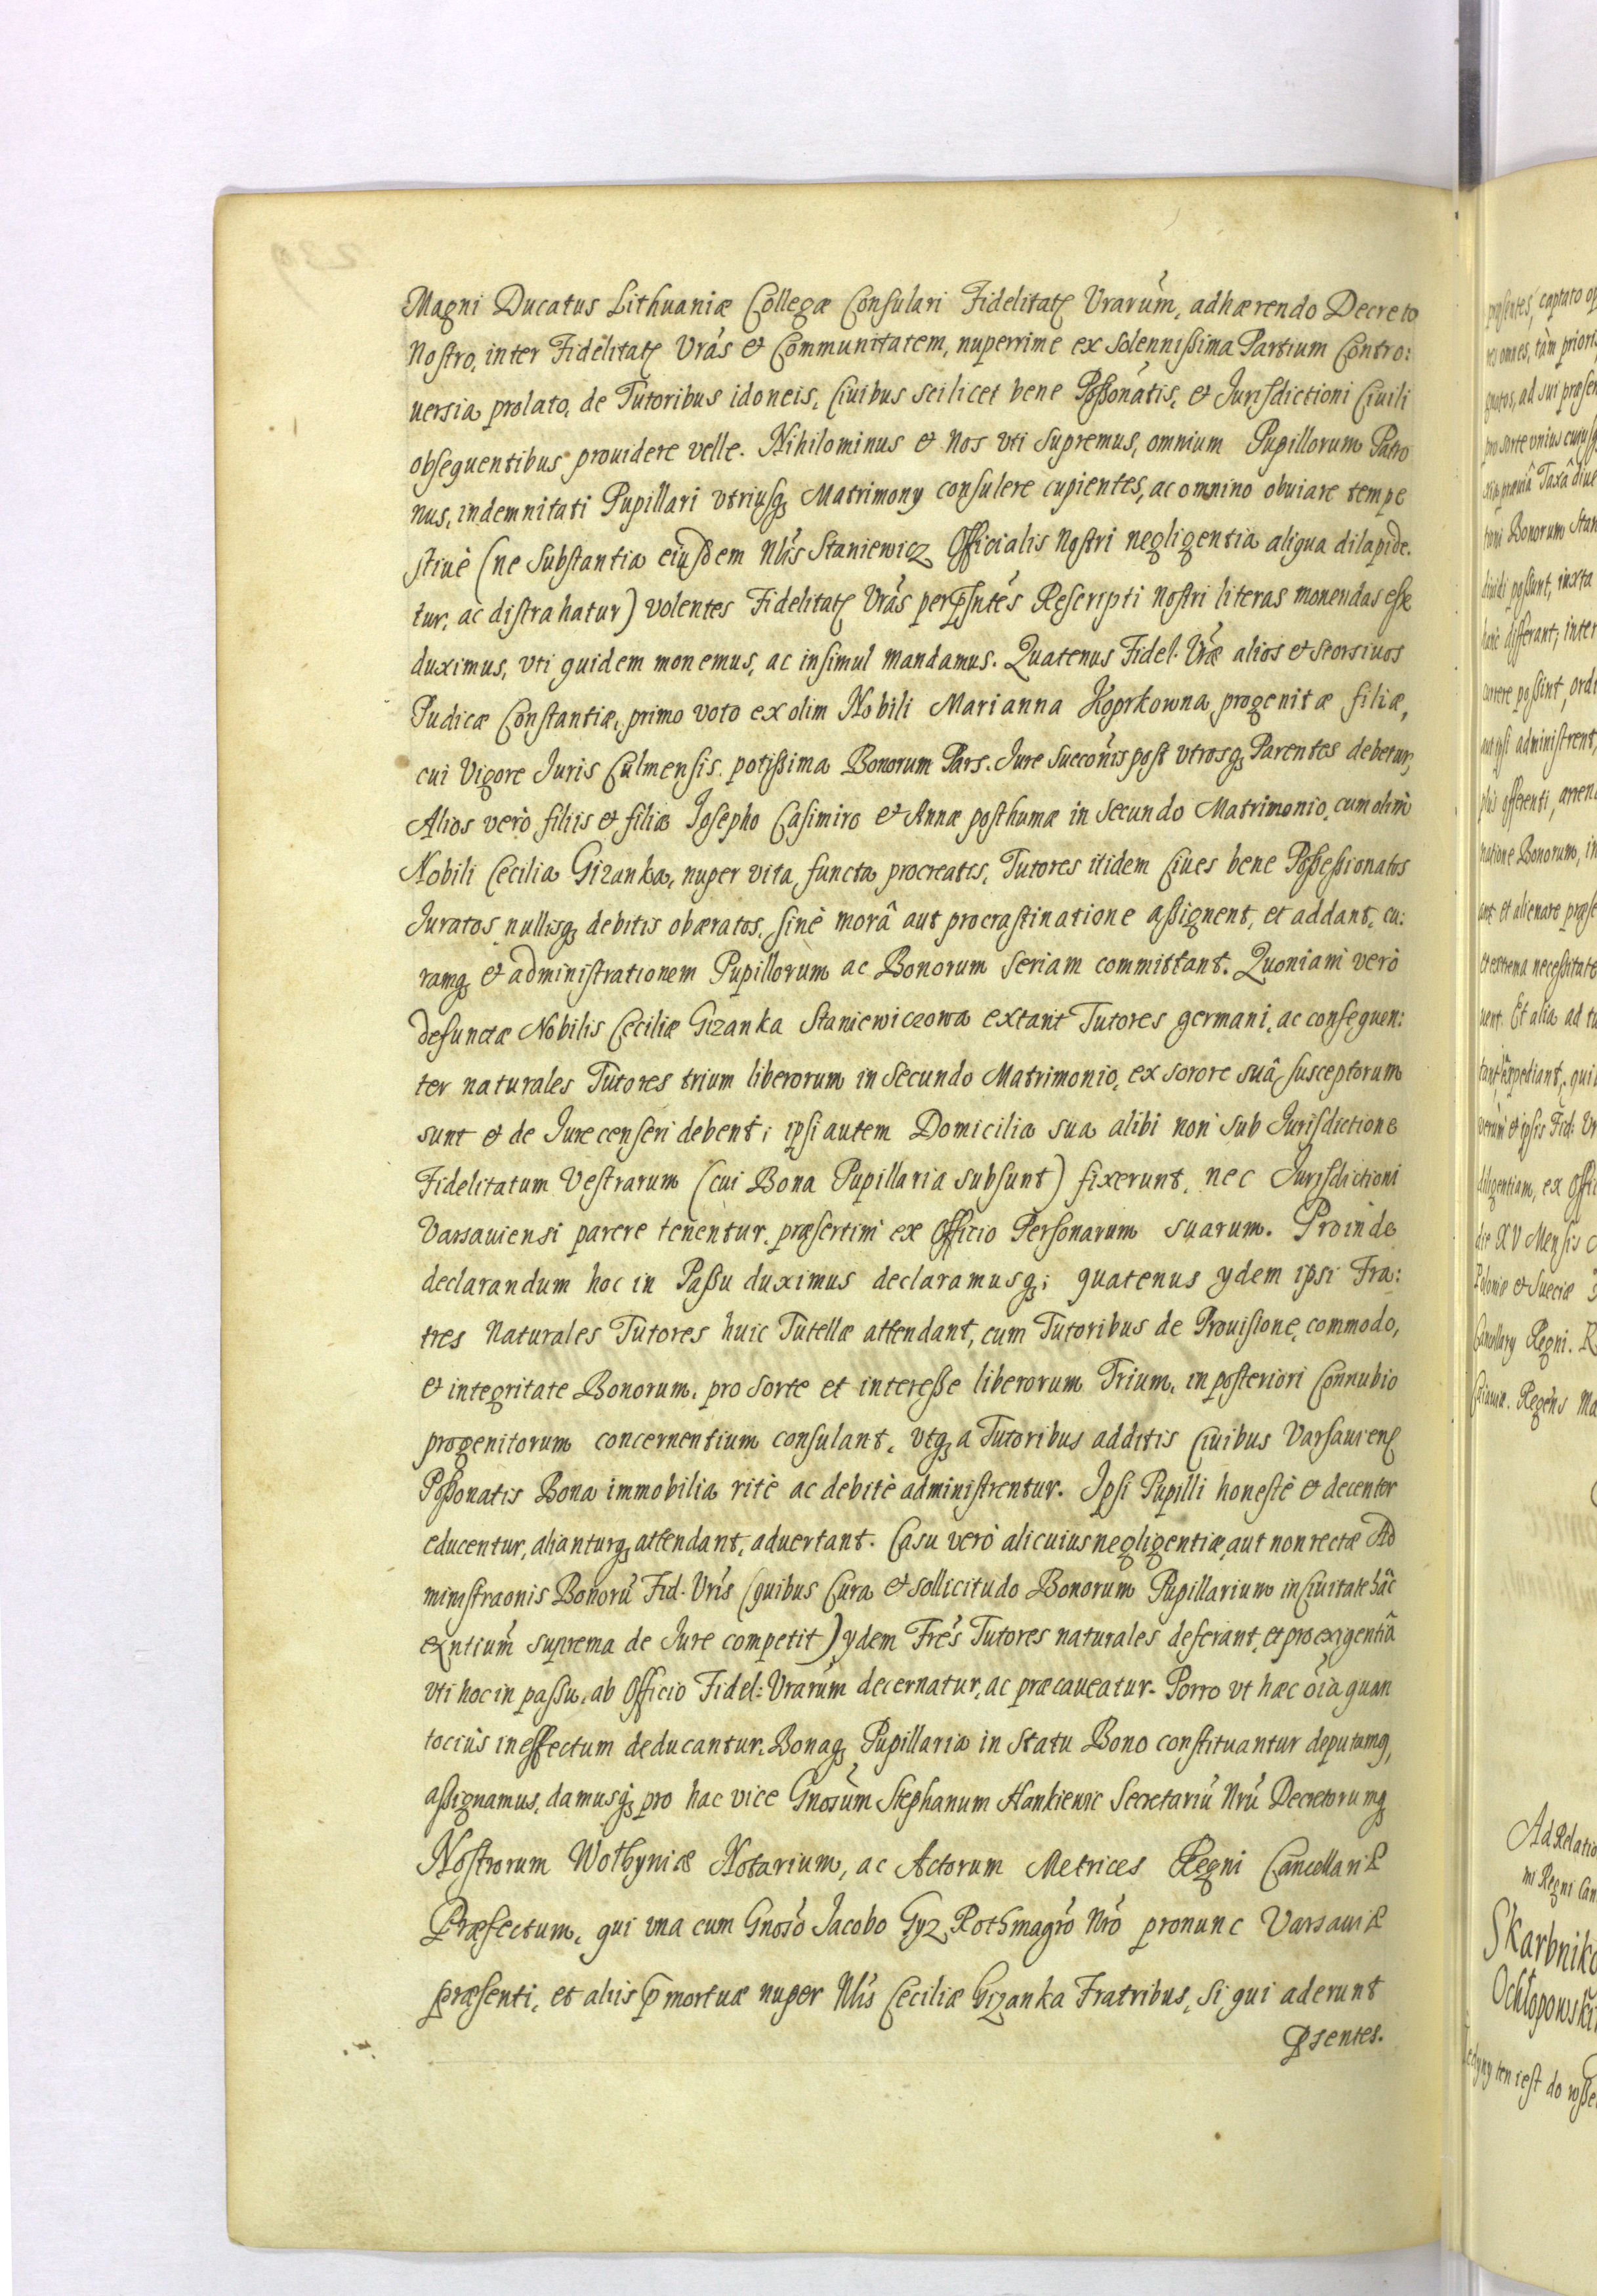 Magni Ducatus Lithuaniæ Collegæ Consulari Fidelitatȩ Vrarum̃, adhærendo Decreto
Nostro, inter Fidelitatȩ Vrás et Communitatem, nuperrime ex Solennißima Partium Contro:
uersia prolato, de Tutoribus idoneis, Ciuibus scilicet bene Poßonátis, et Jurisdictioni Ciuili
obsequentibus prouidere velle. Nihilominus et Nos vti Supremus, omnium Pupillorum Patro
nus, indemnitati Pupillari vtriusq₃ Matrimony consulere cupientes, ac omnino obuiare tempe
stiuè (ne Substantia eiusdem Nlis Staniewicz Officialis Nostri negligentia aliqua dilapide.
tur, ac distrahatur) volentes Fidelitatȩ Vrás per pṡntés Rescripti Nostri literas monendas eße
duximus, vti quidem monemus, ac insimul mandamus. Quatenus Fidel. Vræ alios et seorsiuos
Pudicæ Constantiæ, primo voto ex olim Nobili Marianna Koprkowna progenitæ filiæ,
cui Vigore Juris Culmensis potißima Bonorum Pars. Jure Succoñis post vtrosq₃ Parentes debetur,
Alios verò filiis et filiæ Josepho Casimiro et Annæ posthumæ in Secundo Matrimonio, cum olim
Nobili Cecilia Gizanka, nuper vita functa procreatis, Tutores itidem Ciues bene Poßeßionatos
Juratos nullisq₃ debitis obæratos, sinè morâ aut procrastinatione aßignent, et addant, cu:
ramq₃ et administrationem Pupillorum ac Bonorum seriam committant. Quoniam verò
defunctæ Nobilis Ceciliæ Gizanka Staniewiczowa extant Tutores germani, ac consequen:
ter naturales Tutores trium liberorum in Secundo Matrimonio, ex sorore suâ susceptorum
sunt et de Jure censeri debent; ipsi autem Domicilia sua alibi non sub Jurisdictione
Fidelitatum Vestrarum (cui Bona Pupillaria subsunt) fixerunt, nec Jurisdictioni
Varsauiensi parere tenentur, præsertim ex Officio Personarum suarum. Proinde
declarandum hoc in Paßu duximus declaramusq₃; quatenus ydem ipsi Fra:
tres Naturales Tutores huic Tutellæ attendant, cum Tutoribus de Prouisione, commodo,
et integritate Bonorum, pro Sorte et intereße liberorum Trium, in posteriori Connubio
progenitorum concernentium consulant, vtq₃ a Tutoribus additis Ciuibus Varsauienȩ
Poßonatis Bona immobilia ritè ac debitè administrentur. Ipsi Pupilli honestè et decenter
educentur, alianturq₃ attendant, aduertant. Casu verò alicuius negligentiæ, aut non rectæ Ad
ministraonis Bonorũ Fid. Vrís (quibus Cura et Sollicitudo Bonorum Pupillarium in Ciuitate hâc
exntium̃ suprema de Jure competit) ydem Frés Tutores naturales deferant, et pro exigentiâ
vti hoc in passu, ab Officio Fidel: Vrarum̃ decernatur, ac præcaueatur. Porro vt hæc oĩa quan
tociùs in effectum deducantur, Bonaq₃ Pupillaria in Statu Bono constituantur deputamq₃,
aßignamus, damusq₃ pro hac vice Gnosum̃ Stephanum Hankiewic Secretariũ Nrũ Decretorumq₃
Nostrorum Wołhyniæ Notarium, ac Actorum Metrices Regni Cancellariæ
Præfectum, qui vna cum Gnosó Jacobo Gyz Rothmagró Nró pronunc Varsauiæ
præsenti, et aliis p̃mortuæ nuper Nlis Ceciliæ Gizanka Fratribus, si qui aderunt
p̃sentes.